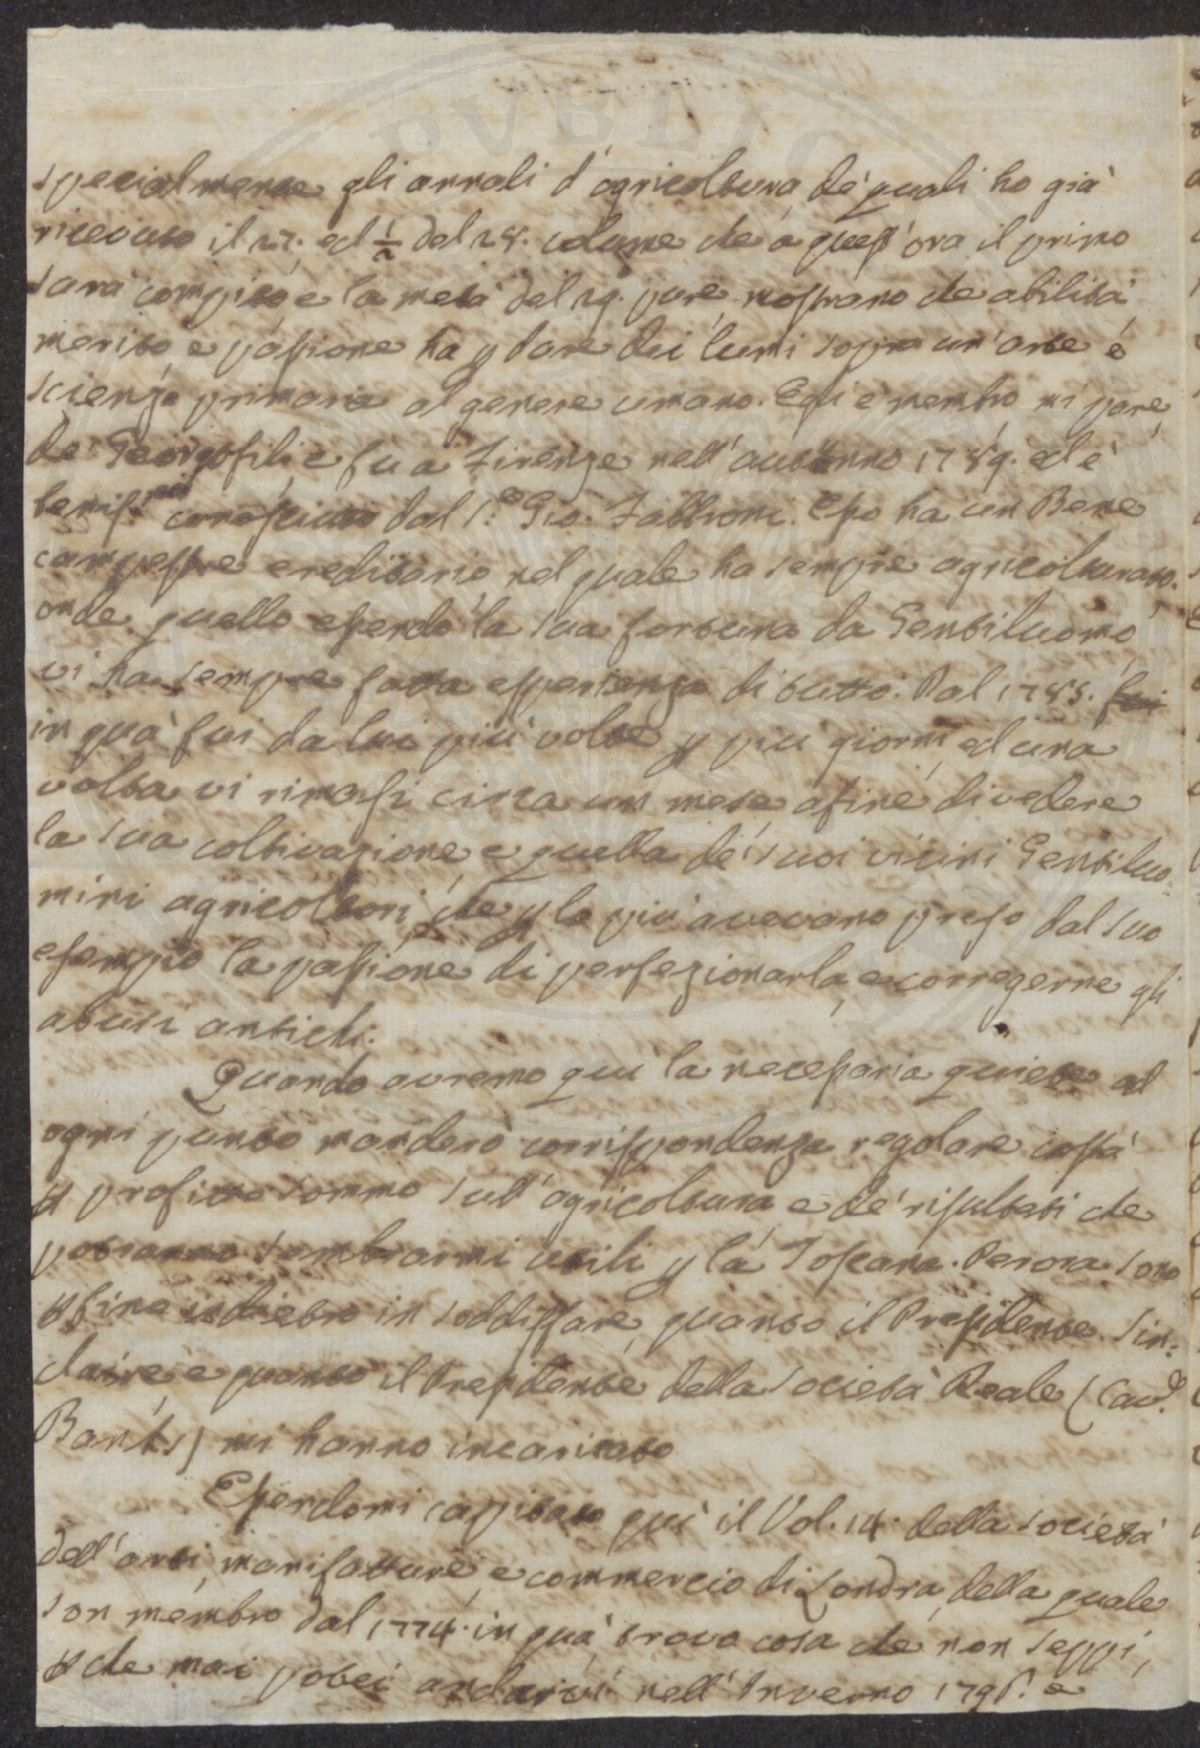 PVBLIC
specialmente gli annali d'agricoltura de' quali ho già
ricevuto il 27. ed ½ del 28. volume che a quest'ora il primo
sarà compito e la metà del 29. pure, mostrano che abilità
merito e passione ha p dare dei lumi sopra un'arte e
scienza primaria al genere umano. Egli è membro, mi pare,
de' Georgofili e fu a Firenze nell'autunno 1789. ed è
beniss.mo conosciuto dal S.e Gio. Fabbroni. Esso ha un Bene
campestre ereditario nel quale ha sempre agricolturato.
onde quello essendo la sua fortuna da Gentiluomo
vi ha sempre fatta esperienza di tutto. Dal 1785. fui
in quà fui da lui più volte p più giorni, ed una
volta vi rimasi circa un mese afine di vedere
la sua coltivazione e quella de' suoi vicini Gentiluo=
mini agricoltori, che p lo più avevano preso dal suo
esempio la passione di perfezionarla, e corregerne gli
abusi antichi.
Quando avremo qui la necessaria quiete ad
ogni punto manderò corrispondenza regolare costà
p profitto sommo sull'agricoltura e de' risultati che
potranno sembrarmi utili p la Toscana. Perora sono
p fine indietro in soddisfare quanto il Presidente Sin=
claire e quanto il Presidente della Società Reale (Cav.e
Banks) mi hanno incaricato
Essendomi capitato qui il Vol. 14. della società
dell'arti, manifatture, e commercio di Londra, della quale
son membro dal 1774. in quà, trovo cosa che non seppi,
p che mai potei andarvi nell'Inverno 1795. e